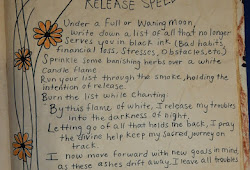 RELEASE SPELL
Under a Full or Waning moon,
write down a list of all that no longer
serves you in black ink (Bad habits,
financial loss, Stresses, Obstacles, etc.)
Sprinkle some banishing herbs over a white
Candle flame
Run your list through the smoke, holding the
intention of release.
Burn the list while Chanting
By this flame of white, I release my troubles
into the darkness of night,
Letting go of all that holds me back, I pray
the divine help keep my sacred journey on
track.
I now move forward with new goals in mind,
as these ashes drift away, I leave all troubles